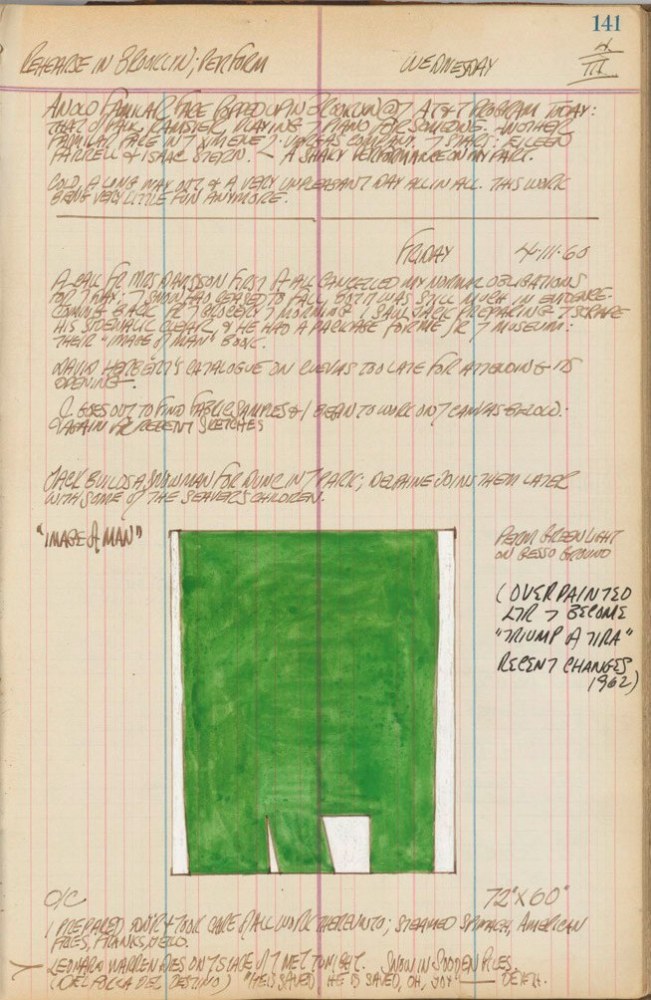 141
REHEARSE IN BROOKLYN; PERFORM WEDNESDAY 4/III
AN OLD FAMILIAR FACE POPPED UP IN BROOKLYN @ 7 AT&T PROGRAM TODAY:
THAT OF PAUL PLAYING 7 PIANO FOR SOMEONE. ANOTHER
FAMILIAR FACE IN 7 XIMENEZ-VARGAS COMPANY. 7 STARS: EILEEN
FARRELL & ISAAC STERN. A SHAKY PERFORMANCE ON MY PART.
COLD A LONG WAY OUT & A VERY UNPLEASANT DAY ALL IN ALL. THIS WORK
BEING VERY LITTLE FUN ANYMORE.
FRIDAY 4-III-60
A CALL FR MRS FIRST OF ALL CANCELLED MY NORMAL OBLIGATIONS
FOR 7 DAY; 7 SNOW HAD CEASED TO FALL, BUT IT WAS STILL MUCH IN EVIDENCE.
COMING BACK FR 7 GROCERY 7 MORNING I SAW JACK PREPARING 7 SCRAPE
HIS SIDEWALK CLEAR, & HE HAD A PACKAGE FOR ME FR 7 MUSEUM:
THEIR "IMAGE OF MAN" BOOK.
DAVID HERBERT'S CATALOGUE ON CUEVAS TOO LATE FOR ATTENDING ITS
OPENING.
C GOES OUT TO FIND FABRIC SAMPLES & I BEGAN TO WORK ON 7 CANVAS BELOW.
AGAIN FR RECENT SKETCHES
JACK BUILDS A SNOWMAN FOR DUNC IN 7 PARK; DELPHINE JOINS THEM LATER
WITH SOME OF THE SEAVERS CHILDREN.
"IMAGE OF MAN"
PERM GREEN LIGHT
ON GESSO GROUND
(OVERPAINTED
LTR 7 BECOME
"TRIUMP A TIRA"
RECENT CHANGES
1962)
O/C 72"X60"
I PREPARED DINR & TOOK CARE OF ALL WORK THEREINTO; STEAMED SPINACH, AMERICAN
FRIES, FRANKS, JELLO.
LEONARD WARREN DIES ON 7 STAGE OF 7 MET TONIGHT. SNOW IN SODDEN PILES.
(DEL FORZA DEL DESTINO) "HE IS SAVED, HE IS SAVED, OH, JOY" — DEATH.